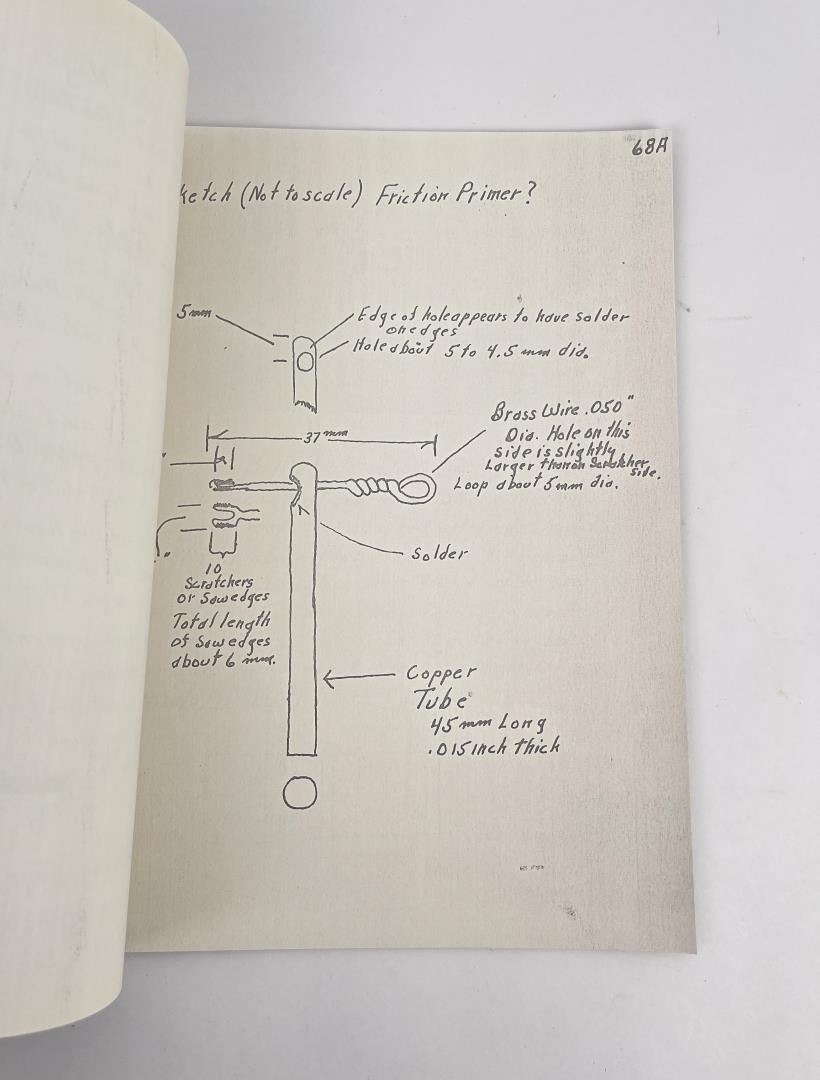 68A
ketch (Not to scale) Friction Primer?
5mm
Edge of hole appears to have solder
on edges
Hole about 5 to 4.5 mm dia.
37 mm
Brass Wire .050"
Dia. Hole on this
side is slightly
Larger than on Scratcher
side.
Loop about 5mm dia.
"
Solder
"
10
Scratchers
or Sawedges
Total length
of Sawedges
about 6 mm.
Copper
Tube
45mm Long
.015 inch thick